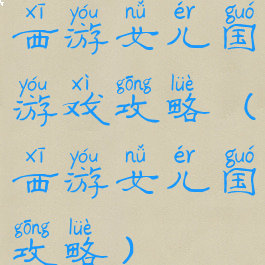 xī yóu nǚ ér guó
西游女儿国
yóu xì gōng lüè
游戏攻略（
xī yóu nǚ ér guó
西游女儿国
gōng lüè
攻略）